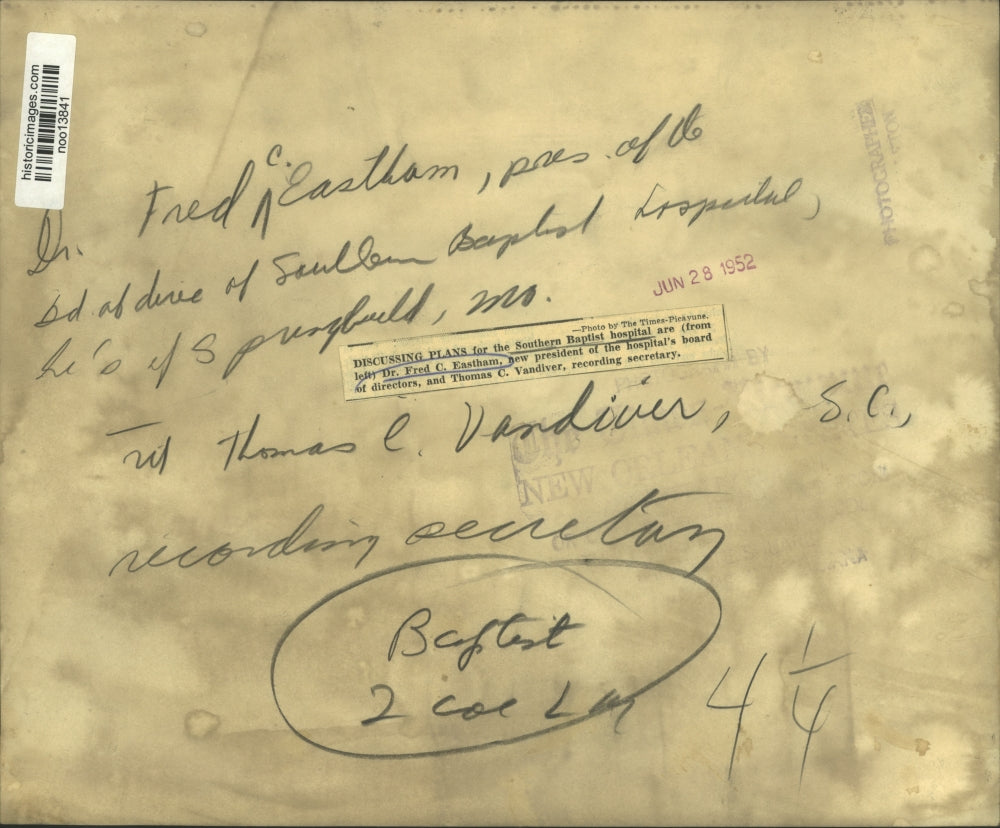 historicimages.com
noo13841
Dr. Fred C. Eastham, pres. of
bd. of direc of Southern Baptist hospital,
he's of Springfield, Mo.
JUN 28 1952
—Photo by The Times-Picayune.
DISCUSSING PLANS for the Southern Baptist hospital are (from
left) Dr. Fred C. Eastham, new president of the hospital's board
of directors, and Thomas C. Vandiver, recording secretary.
Thomas C. Vandiver, S.C.,
recording secretary
Baptist
2 col
4 1/4
PHOTOGRAPHED
NEW ORLEANS
BY